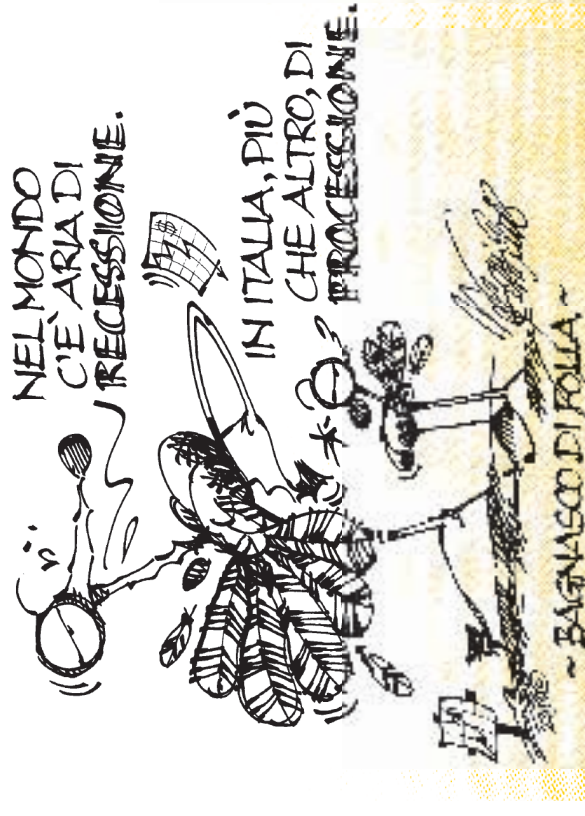 NEL MONDO
C'È ARIA DI
RECESSIONE.
IN ITALIA, PIÙ
CHE ALTRO, DI
PROCESSIONE.
~ BAGNASCO DI FOLLA ~